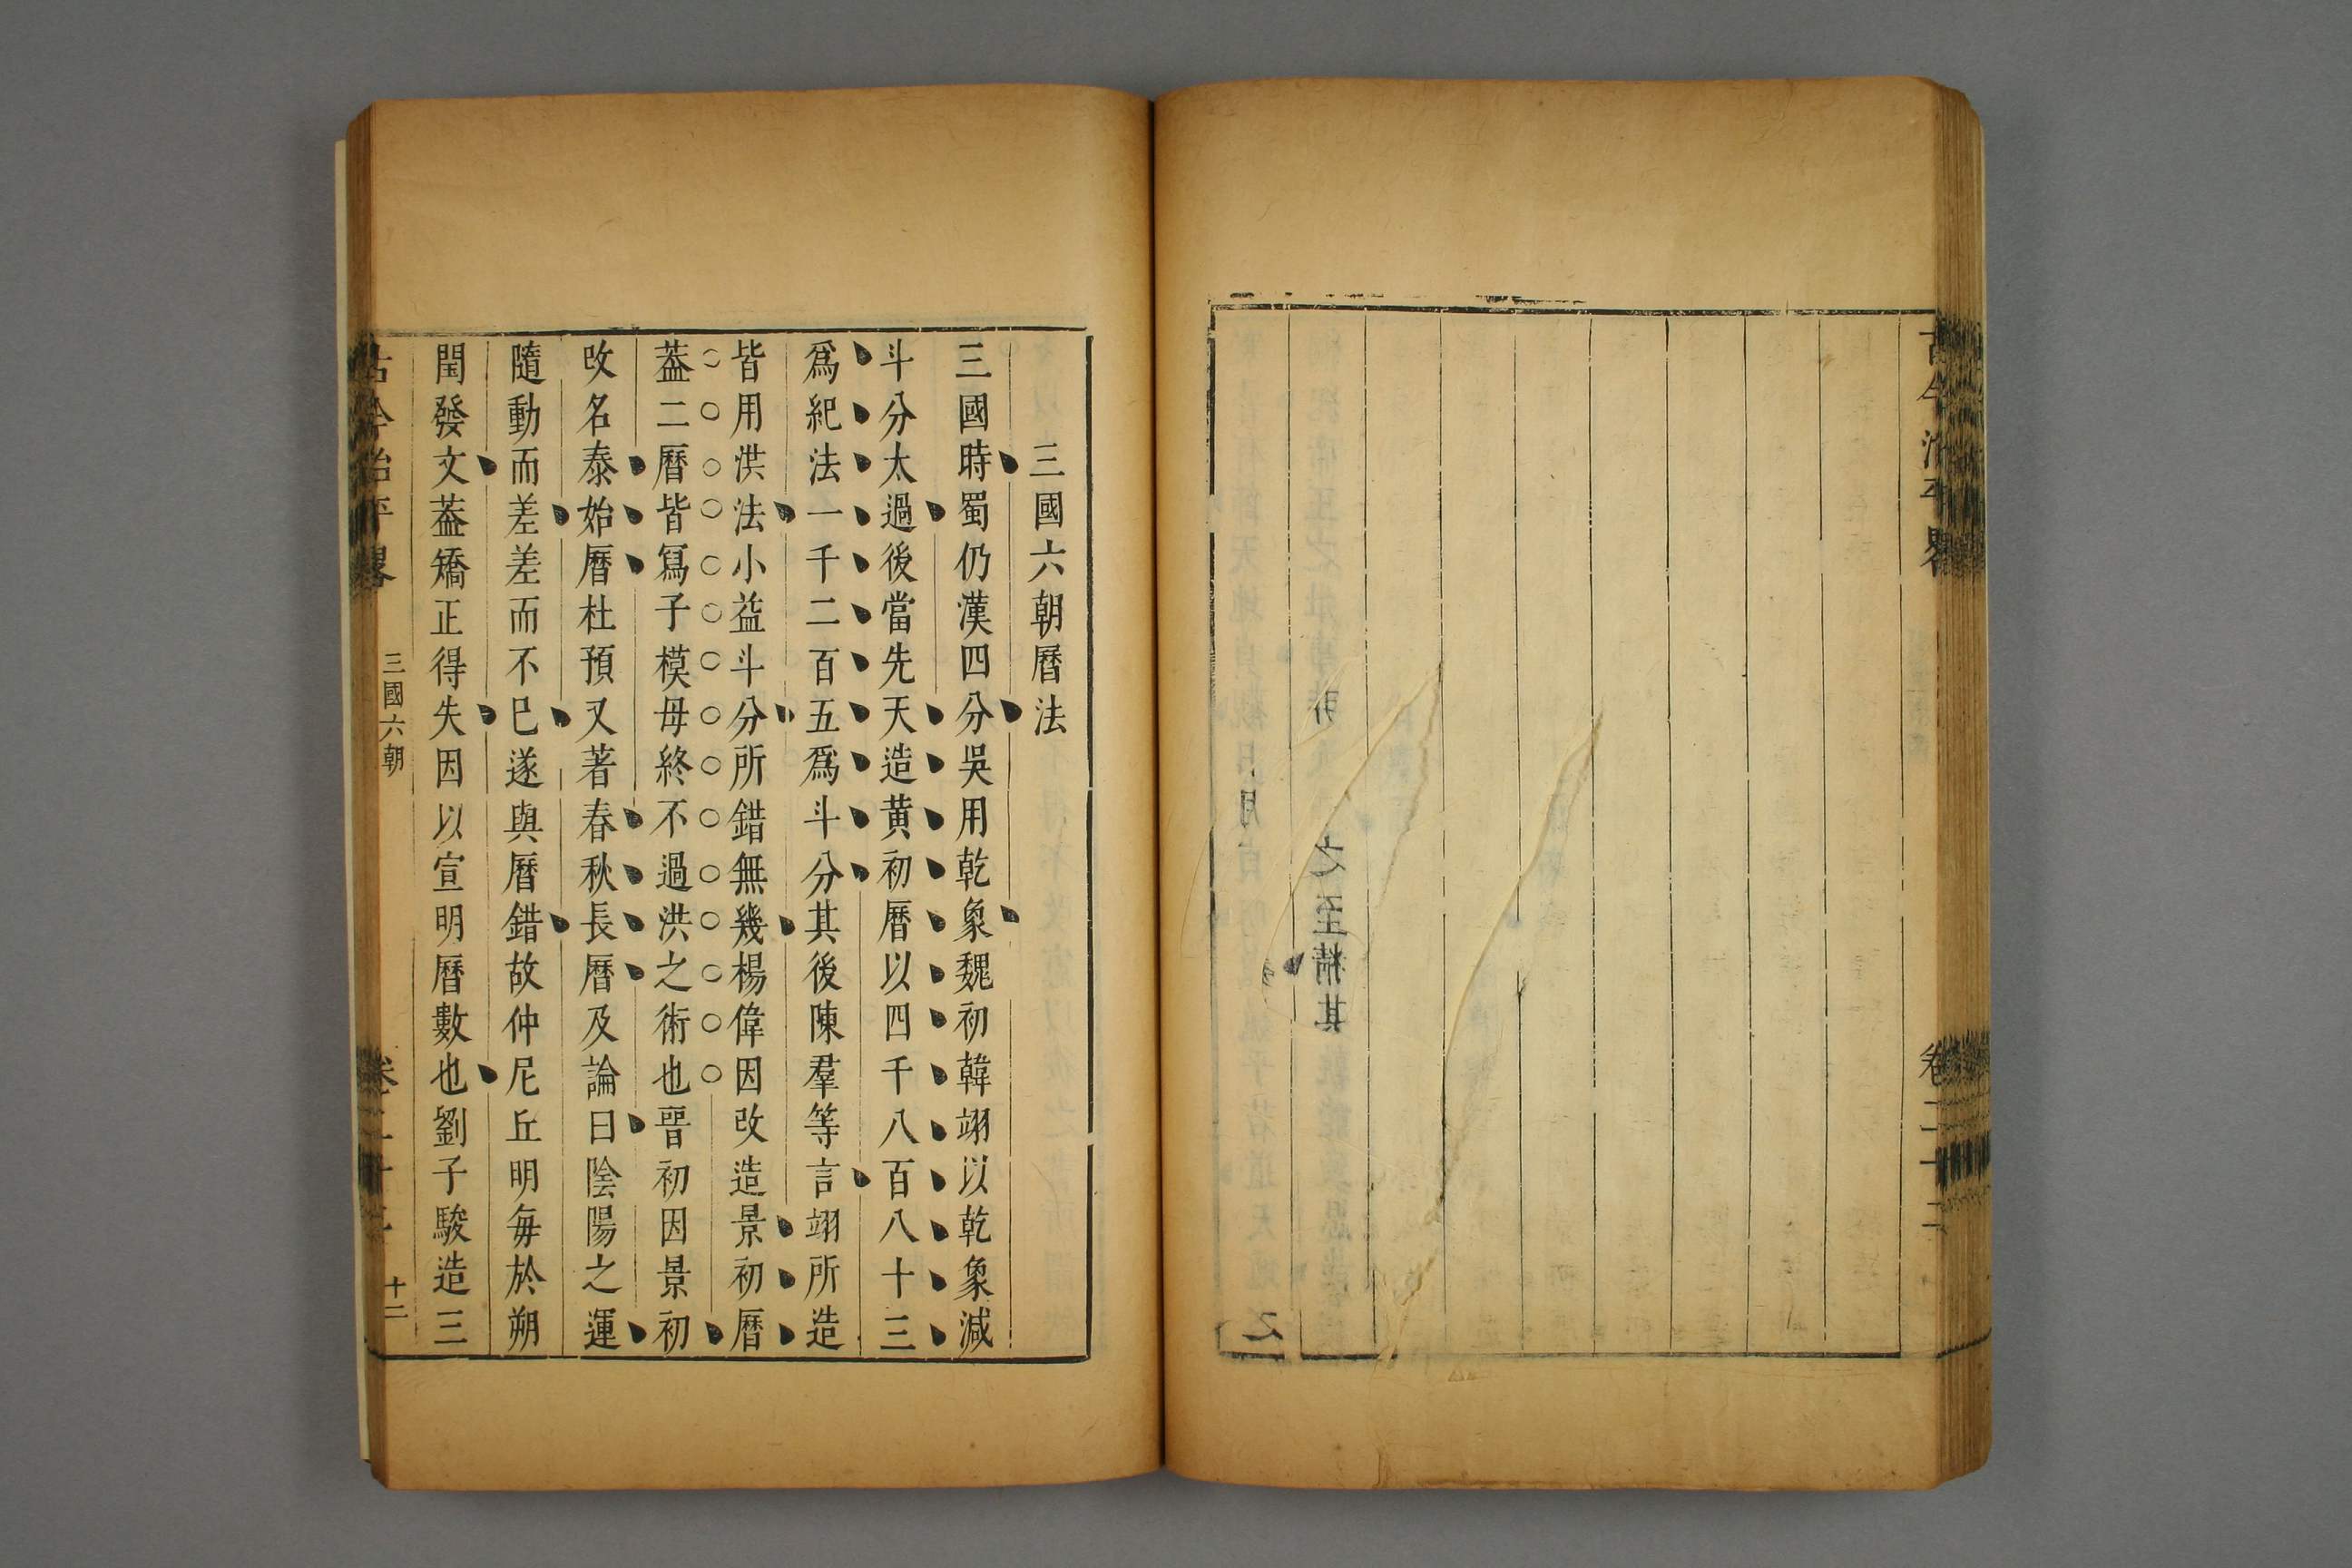 古今治平畧
卷二十三
三國六朝曆法
三國時蜀仍漢四分吳用乾象魏初韓翊以乾象減
斗分太過後當先天造黄初曆以四千八百八十三
爲紀法一千二百五爲斗分其後陳羣等言翊所造
皆用洪法小益斗分所錯無幾楊偉因改造景初曆
葢二曆皆寫子模毋終不過洪之術也晉初因景初
改名泰始曆杜預又著春秋長曆及論曰陰陽之運
隨動而差差而不已遂與曆錯故仲尼丘明每於朔
閏發文葢矯正得失因以宣明曆數也劉子駿造三
古今治平畧
三國六朝
卷二十三
十二